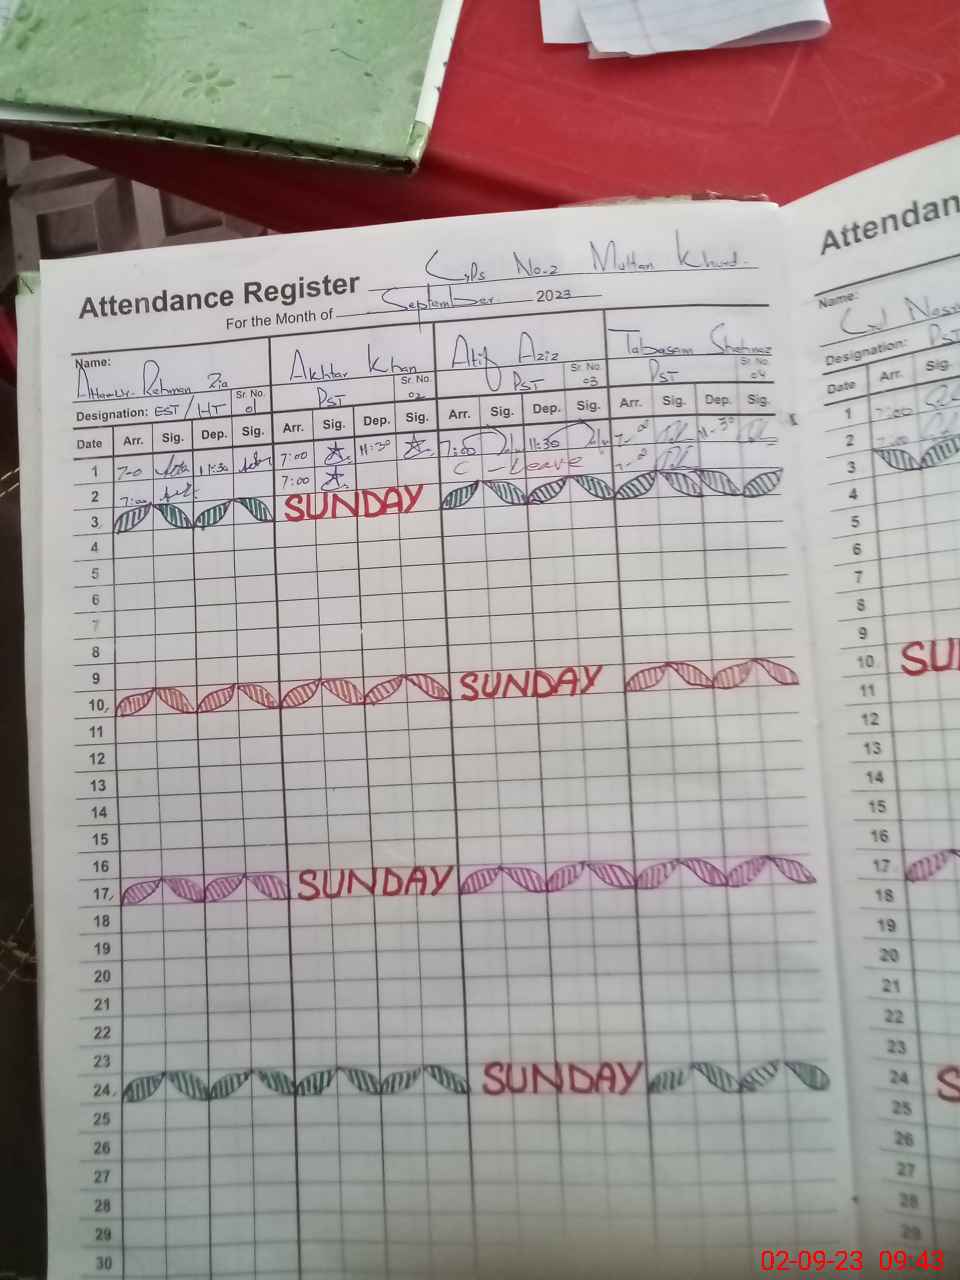 Attendance Register GPS No-2 Multan Khurd.
For the Month of September 2023
Name:
Rehman Zia
Akhtar Khan
Atif Aziz
Tabasam Shehnaz
Designation: EST/HT Sr. No. 01
PST Sr. No. 02
PST Sr. No. 03
PST Sr. No. 04
Date Arr. Sig. Dep. Sig. Arr. Sig. Dep. Sig. Arr. Sig. Dep. Sig. Arr. Sig. Dep. Sig.
1 7-0 11:30 7:00 11:30 7:00 11:30 7-00 11-30
2 7:00 7:00 C-Leave 7-00
3 SUNDAY
4
5
6
7
8
9
10 SUNDAY
11
12
13
14
15
16
17 SUNDAY
18
19
20
21
22
23
24 SUNDAY
25
26
27
28
29
30
Attendan
Name:
Designation: PST
Date Arr. Sig.
1 7:00
2 7:00
3
4
5
6
7
8
9
10 SU
11
12
13
14
15
16
17
18
19
20
21
22
23
24 S
25
26
27
28
29
02-09-23 09:43